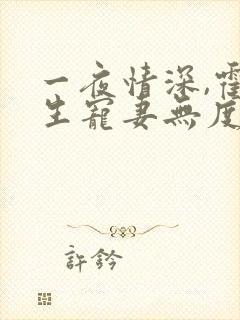 一夜情深,霍
生寵妻無度
許鈐